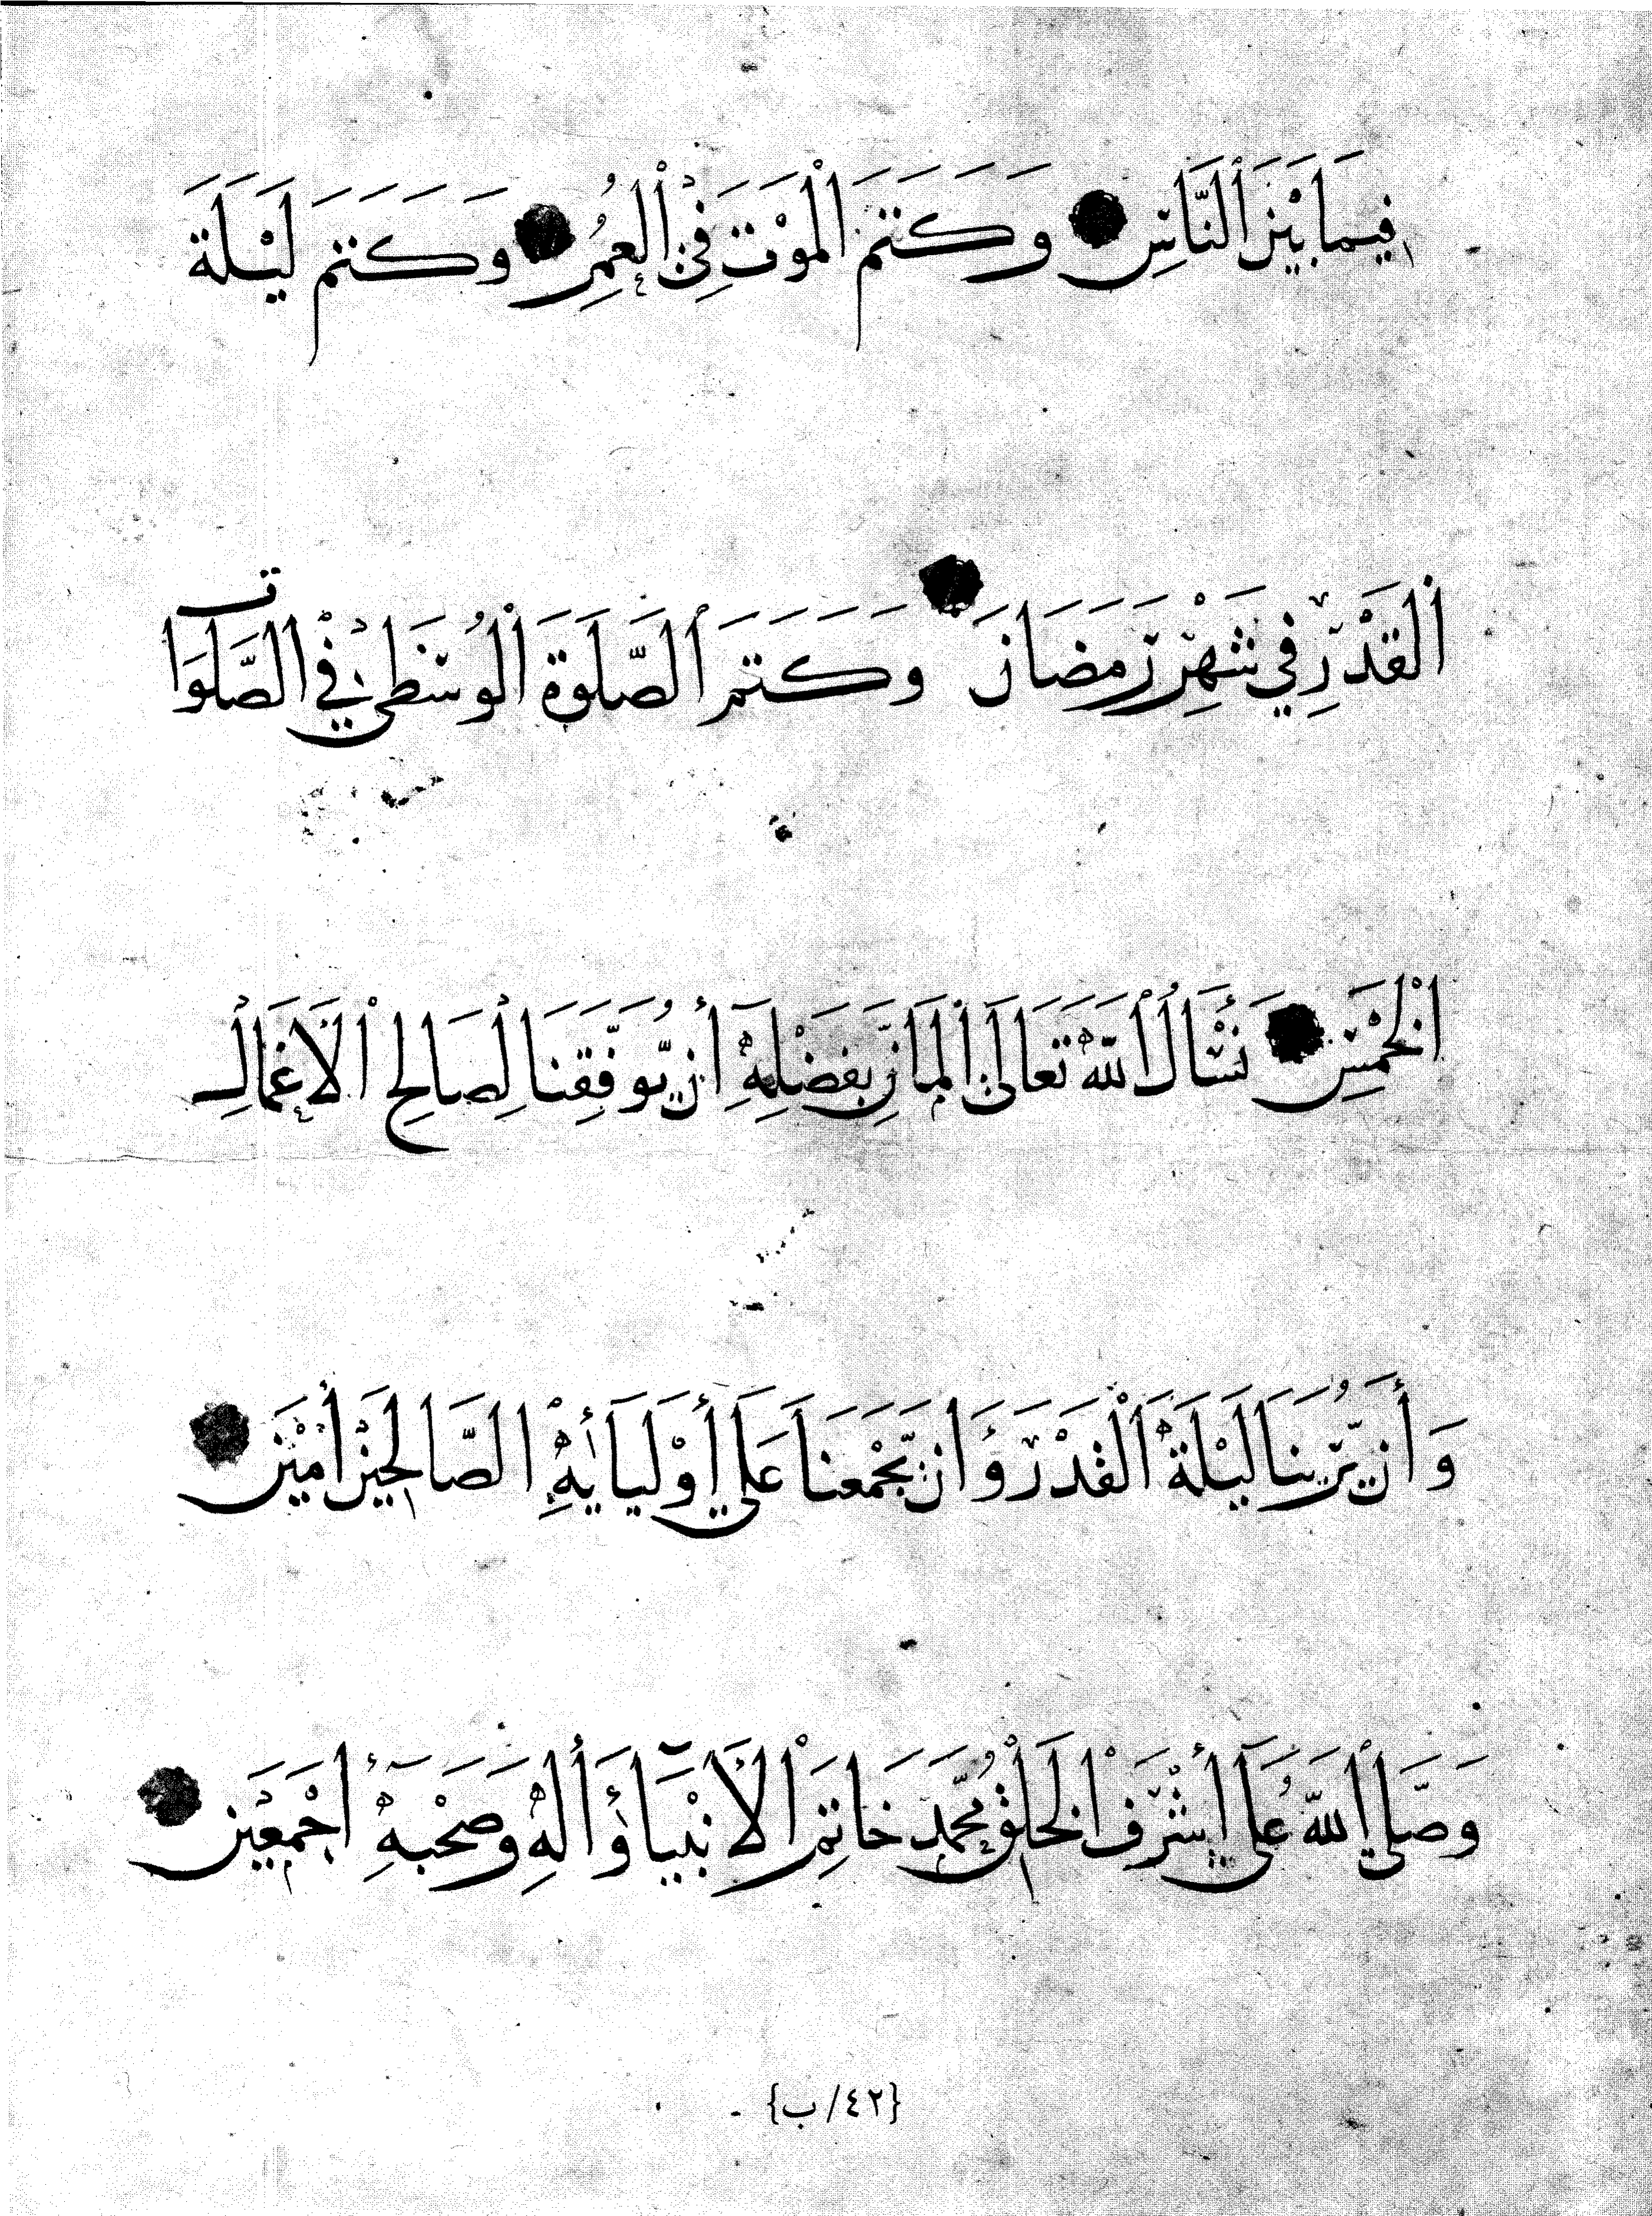 فِيمَا بَيْنَ ٱلنَّاسِ وَكَتَمَ ٱلْمَوْتَ فِي ٱلْعُمُرِ وَكَتَمَ لَيْلَةَ
ٱلْقَدْرِ فِي شَهْرِ رَمَضَانَ وَكَتَمَ ٱلصَّلَوةَ ٱلْوُسْطَى فِي ٱلصَّلَوَاتِ
ٱلْخَمْسِ نَسْأَلُ ٱللَّهَ تَعَالَى ٱلْمَانَّ بِفَضْلِهِ أَنْ يُّوَفِّقَنَا لِصَالِحِ ٱلْأَعْمَالِ
وَأَنْ يُّرِيَنَا لَيْلَةَ ٱلْقَدْرِ وَأَنْ يَّجْمَعَنَا عَلَى أَوْلِيَائِهِ ٱلصَّالِحِينَ أٰمِيْنَ
وَصَلَّى ٱللَّهُ عَلَى أَشْرَفِ ٱلْخَلْقِ مُحَمَّدٍ خَاتِمِ ٱلْأَنْبِيَاءِ وَأٰلِهِ وَصَحْبِهِ أَجْمَعِيْنَ
{٤٢/ب}